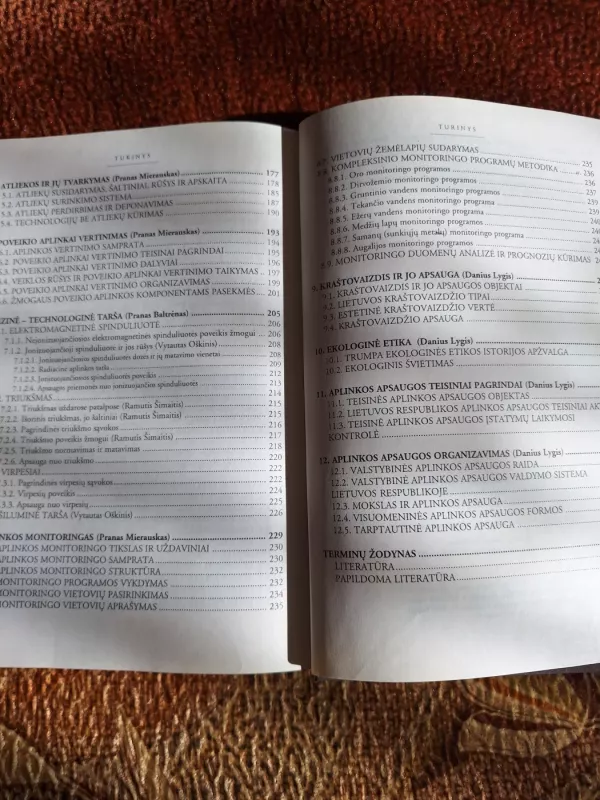 TURINYS
ATLIEKOS IR JŲ TVARKYMAS (Pranas Mierauskas) 177
5.1. ATLIEKŲ SUSIDARYMAS, ŠALTINIAI, RŪŠYS IR APSKAITA 178
5.2. ATLIEKŲ SURINKIMO SISTEMA 185
5.3. ATLIEKŲ PERDIRBIMAS IR DEPONAVIMAS 187
5.4. TECHNOLOGIJŲ BE ATLIEKŲ KŪRIMAS 190
POVEIKIO APLINKAI VERTINIMAS (Pranas Mierauskas) 193
6.1. APLINKOS VERTINIMO SAMPRATA 194
POVEIKIO APLINKAI VERTINIMO TEISINIAI PAGRINDAI 195
6.3. POVEIKIO APLINKAI VERTINIMO DALYVIAI 196
6.4. VEIKLOS RŪŠYS IR POVEIKIO APLINKAI VERTINIMO TAIKYMAS 197
POVEIKIO APLINKAI VERTINIMO ORGANIZAVIMAS 200
6. ŽMOGAUS POVEIKIO APLINKOS KOMPONENTAMS PASEKMĖS 201
ZINĖ – TECHNOLOGINĖ TARŠA (Pranas Baltrėnas) 205
1. ELEKTROMAGNETINĖ SPINDULIUOTĖ 206
7.1.1. Nejonizuojančiosios elektromagnetinės spinduliuotės poveikis žmogui 206
Jonizuojančioji spinduliuotė ir jos rūšys (Vytautas Oškinis) 208
7.1.2.1. Jonizuojančiosios spinduliuotės dozės ir jų matavimo vienetai 208
7.1.2.2. Radiacinė aplinkos tarša 209
7.1.2.3. Jonizuojančiosios spinduliuotės poveikis 212
7.1.2.4. Apsaugos priemonės nuo jonizuojančiosios spinduliuotės 213
2. TRIUKŠMAS 214
7.2.1. Triukšmas uždarose patalpose (Ramutis Šimaitis) 215
7.2.2. Išorinis triukšmas, jo šaltiniai (Ramutis Šimaitis) 215
7.2.3. Pagrindinės triukšmo sąvokos 216
7.2.4. Triukšmo poveikis žmogui (Ramutis Šimaitis) 217
7.2.5. Triukšmo normavimas ir matavimas 218
7.2.6. Apsauga nuo triukšmo 220
VIRPESIAI 222
7.3.1. Pagrindinės virpesių sąvokos 222
7.3.2. Virpesių poveikis 222
7.3.3. Apsauga nuo virpesių 224
ŠILUMINĖ TARŠA (Vytautas Oškinis) 226
NKOS MONITORINGAS (Pranas Mierauskas) 229
APLINKOS MONITORINGO TIKSLAS IR UŽDAVINIAI 230
APLINKOS MONITORINGO SAMPRATA 230
APLINKOS MONITORINGO STRUKTŪRA 230
MONITORINGO PROGRAMOS VYKDYMAS 232
MONITORINGO VIETOVIŲ PASIRINKIMAS 234
MONITORINGO VIETOVIŲ APRAŠYMAS 235
TURINYS
8.7. VIETOVIŲ ŽEMĖLAPIŲ SUDARYMAS 235
8.8. KOMPLEKSINIO MONITORINGO PROGRAMŲ METODIKA 236
8.8.1. Oro monitoringo programos 236
8.8.2. Dirvožemio monitoringo programos 237
8.8.3. Gruntinio vandens monitoringo programos 239
8.8.4. Tekančio vandens monitoringo programos 240
8.8.5. Ežerų vandens monitoringo programos 240
8.8.6. Medžių lapų monitoringo programos
8.8.7. Samanų (sunkiųjų metalų) monitoringo programos
8.8.8. Augalijos monitoringo programos
8.9. MONITORINGO DUOMENŲ ANALIZĖ IR PROGNOZIŲ KŪRIMAS
9. KRAŠTOVAIZDIS IR JO APSAUGA (Danius Lygis)
9.1. KRAŠTOVAIZDIS IR JO APSAUGOS OBJEKTAI
9.2. LIETUVOS KRAŠTOVAIZDŽIO TIPAI
9.3. ESTETINĖ KRAŠTOVAIZDŽIO VERTĖ
9.4. KRAŠTOVAIZDŽIO APSAUGA
10. EKOLOGINĖ ETIKA (Danius Lygis)
10.1. TRUMPA EKOLOGINĖS ETIKOS ISTORIJOS APŽVALGA
10.2. EKOLOGINIS ŠVIETIMAS
11. APLINKOS APSAUGOS TEISINIAI PAGRINDAI (Danius Lygis)
11.1. TEISINĖS APLINKOS APSAUGOS OBJEKTAS
11.2. LIETUVOS RESPUBLIKOS APLINKOS APSAUGOS TEISINIAI AK
11.3. TEISINĖ APLINKOS APSAUGOS ĮSTATYMŲ LAIKYMOSI
KONTROLĖ
12. APLINKOS APSAUGOS ORGANIZAVIMAS (Danius Lygis)
12.1. VALSTYBINĖS APLINKOS APSAUGOS RAIDA
12.2. VALSTYBINĖ APLINKOS APSAUGOS VALDYMO SISTEMA
LIETUVOS RESPUBLIKOJE
12.3. MOKSLAS IR APLINKOS APSAUGA
12.4. VISUOMENINĖS APLINKOS APSAUGOS FORMOS
12.5. TARPTAUTINĖ APLINKOS APSAUGA
TERMINŲ ŽODYNAS
LITERATŪRA
PAPILDOMA LITERATŪRA